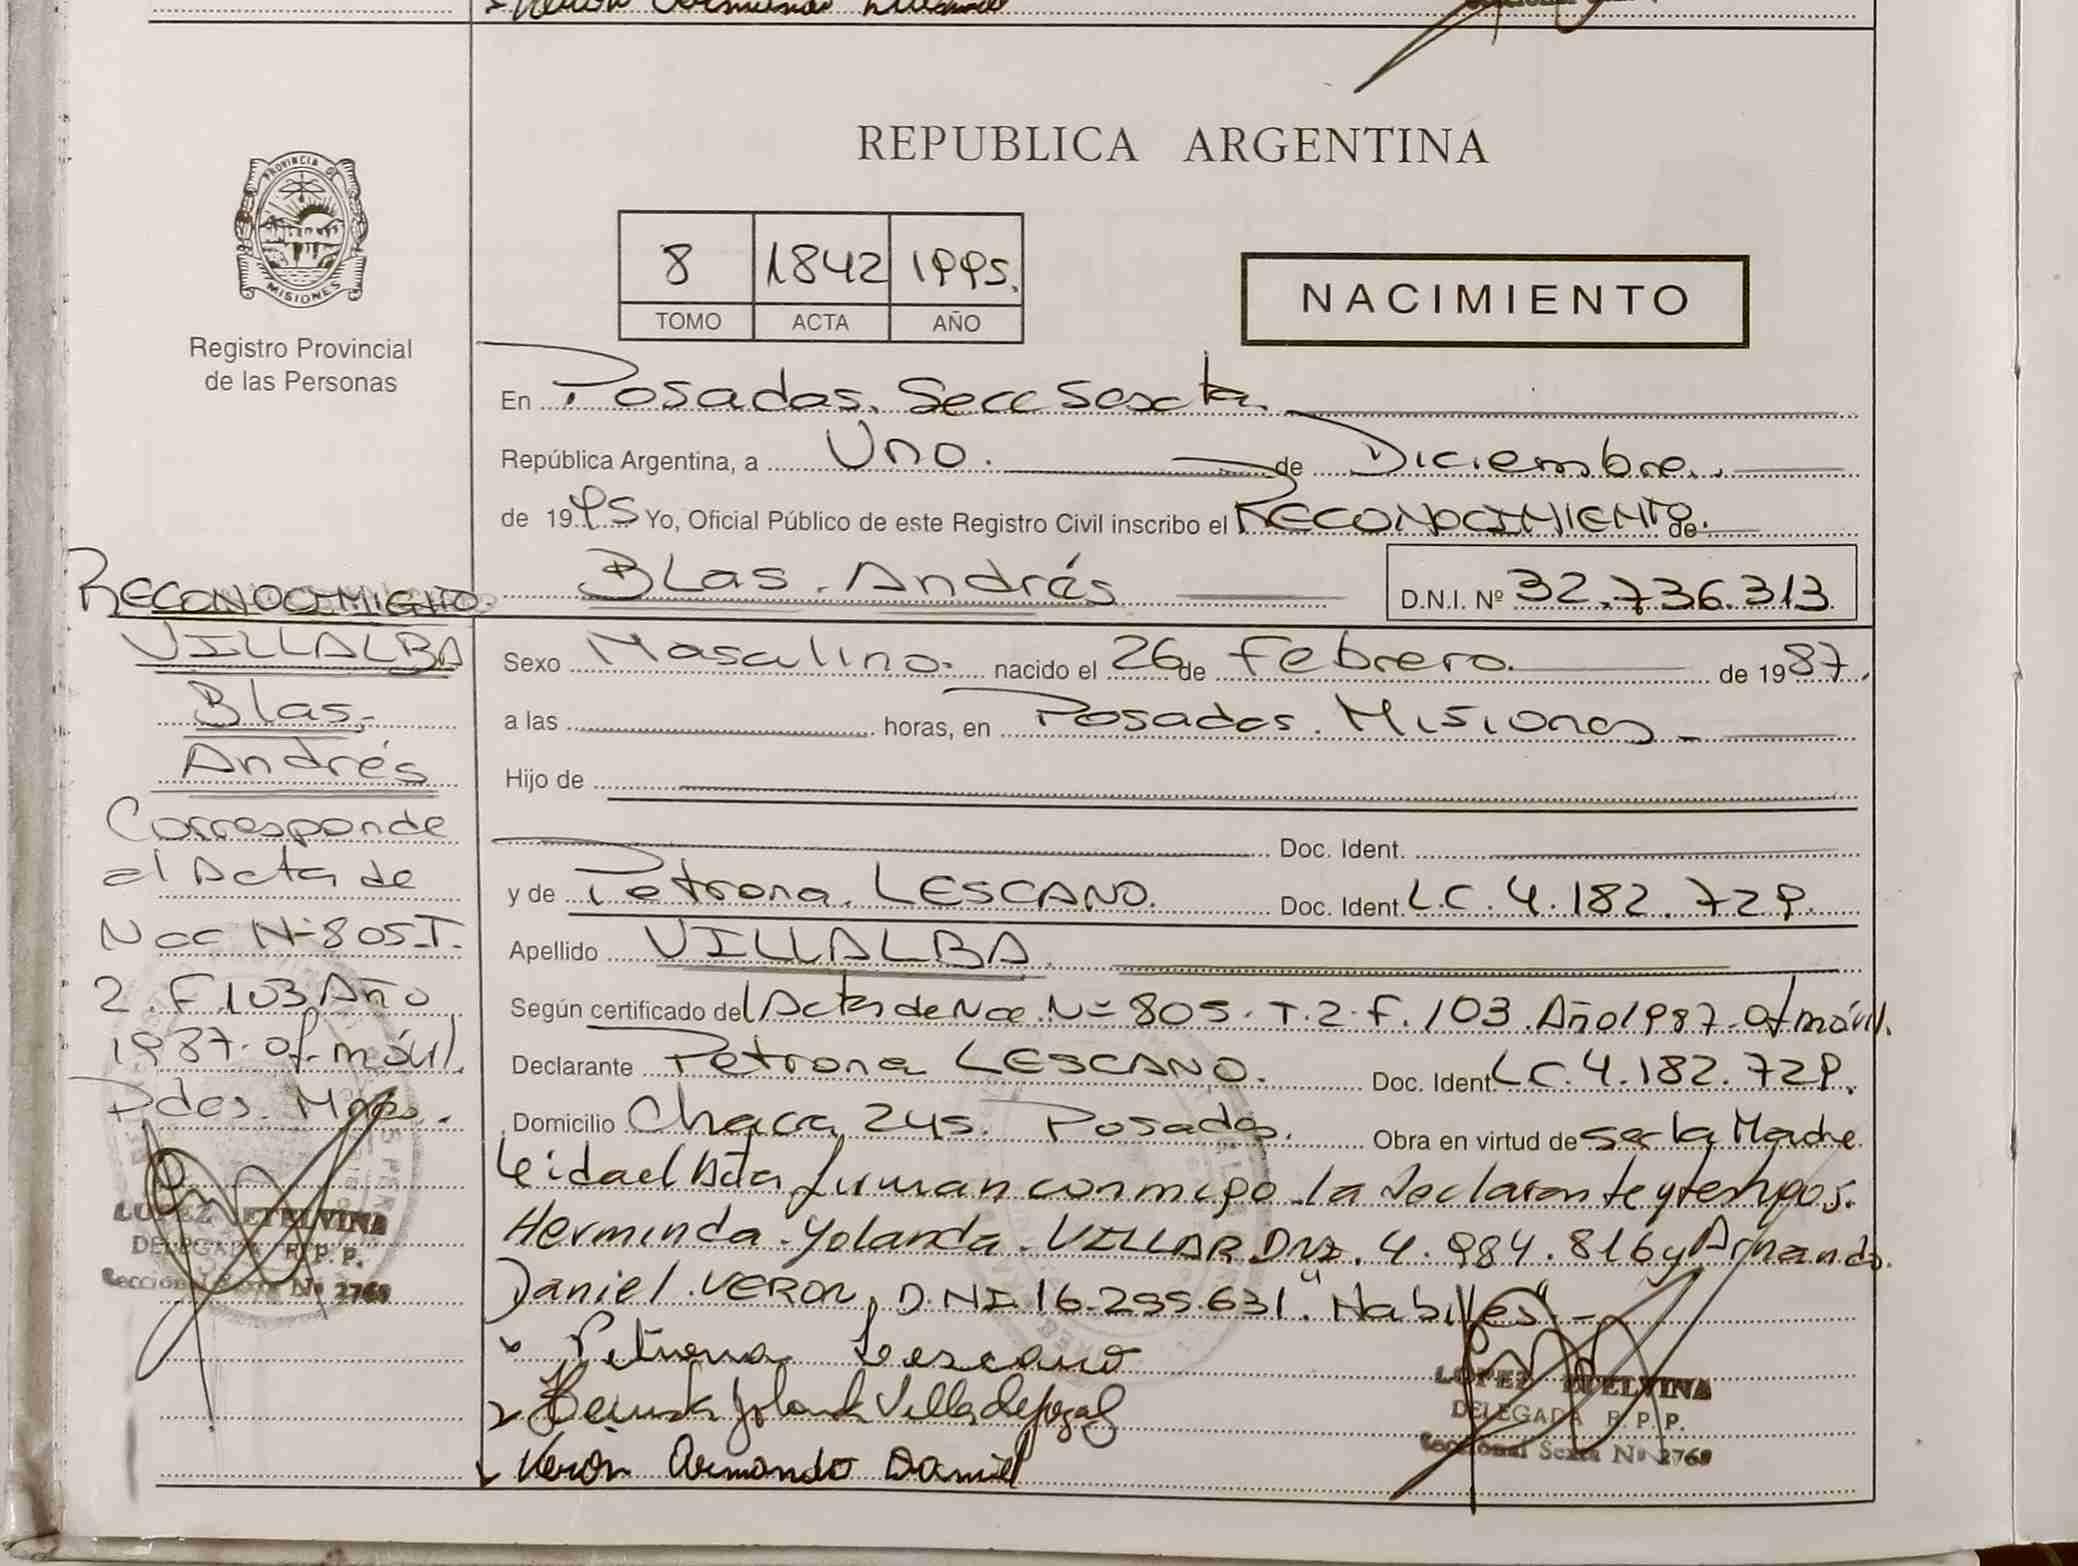 Verón Armando Daniel
REPUBLICA ARGENTINA
PROVINCIA DE
MISIONES
Registro Provincial
de las Personas
8 1842 1995.
TOMO ACTA AÑO
NACIMIENTO
En Posadas. Secc Sexta
República Argentina, a Uno. de Diciembre.
de 1995 Yo, Oficial Público de este Registro Civil inscribo el RECONOCIMIENTO. de
Blas. Andrés D.N.I. Nº 32.736.313.
Sexo Masculino. nacido el 26 de Febrero. de 1987.
a las horas, en Posadas. Misiones
Hijo de
Doc. Ident.
y de Petrona. LESCANO. Doc. Ident. L.C. 4.182.729.
Apellido VILLALBA.
Según certificado del Acta de Nac. Nº 805. T. 2. F. 103. Año 1987. Of móvil.
Declarante Petrona LESCANO. Doc. Ident. L.C. 4.182.729.
Domicilio Chacra 245. Posadas. Obra en virtud de ser la Madre
Leida el Acta firman conmigo la declarante y testigos.
Herminda. Yolanda. VILLAR DNI. 4.984.816 y Armando.
Daniel. VERON, D.NI. 16.295.631. "Habiles" -
Petrona Lescano
Veron Armando Daniel
LOPEZ ETELVINA
DELEGADA R. P. P.
Seccional Sexta Nº 2769
RECONOCIMIENTO.
VILLALBA
Blas.
Andrés
Corresponde
al Acta de
Nac Nº 805 T.
2. F. 103 Año
1987. Of. móvil.
Pdas. Mnes.
LOPEZ ETELVINA
DELEGADA R. P. P.
Seccional Sexta Nº 2769